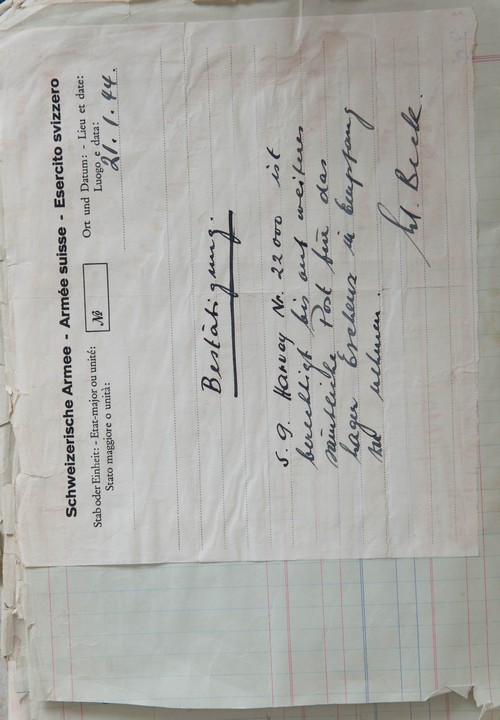 Schweizerische Armee - Armée suisse - Esercito svizzero
Stab oder Einheit: - Etat-major ou unité:
Stato maggiore o unità:
№
Ort und Datum: - Lieu et date:
Luogo e data:
21. 1. 44.
Bestätigung.
S. G. Harvey Nr. 22000 ist
berechtigt bis auf weiteres
sämtliche Post für das
Lager Eschenz in Empfang
zu nehmen.
Lt. Beck.